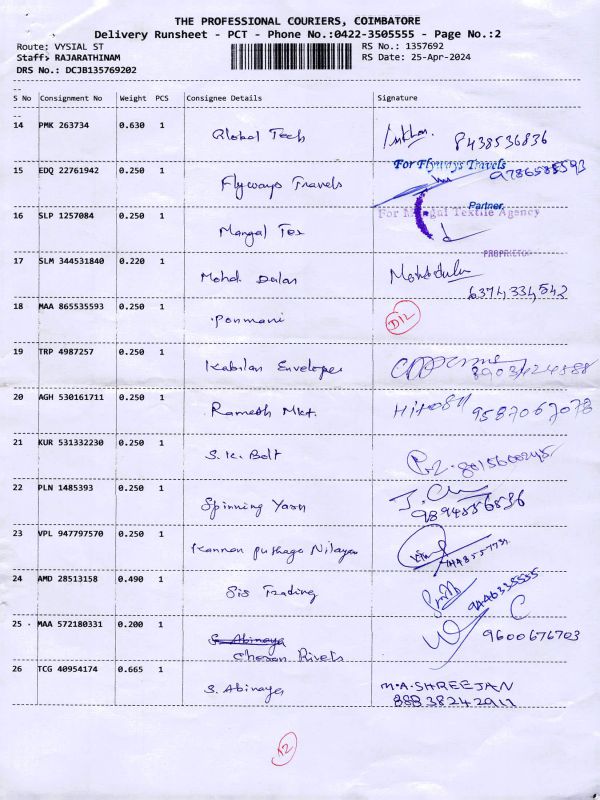 THE PROFESSIONAL COURIERS, COIMBATORE
Delivery Runsheet - PCT - Phone No.:0422-3505555 - Page No.:2
Route: VYSIAL ST RS No.: 1357692
Staff: RAJARATHINAM RS Date: 25-Apr-2024
DRS No.: DCJB135769202
S No Consignment No Weight PCS Consignee Details Signature
14 PMK 263734 0.630 1 Global Tech 8438536836
15 EDQ 22761942 0.250 1 Flyways Travels For Flyways Travels 9786585593
Partner.
16 SLP 1257084 0.250 1 Mangal Tex For Mangal Textile Agency
PROPRIETOR
17 SLM 344531840 0.220 1 Mohd. Dalan
6374334542
18 MAA 865535593 0.250 1 Ponmani D12
19 TRP 4987257 0.250 1 Kabilan Envelopes
20 AGH 530161711 0.250 1 Ramesh Mkt. 9587067078
21 KUR 531332230 0.250 1 S.K. Bolt 8015600245
22 PLN 1485393 0.250 1 Spinning Yarn
9894556536
23 VPL 947797570 0.250 1 Kannan Puthaga Nilayam
24 AMD 28513158 0.490 1 Sis Trading 9446335555
25 MAA 572180331 0.200 1 S. Abinaya
Cheran Rivets 9600676703
26 TCG 40954174 0.665 1 S. Abinaya M.A.SHREEJAN
88838242911
12